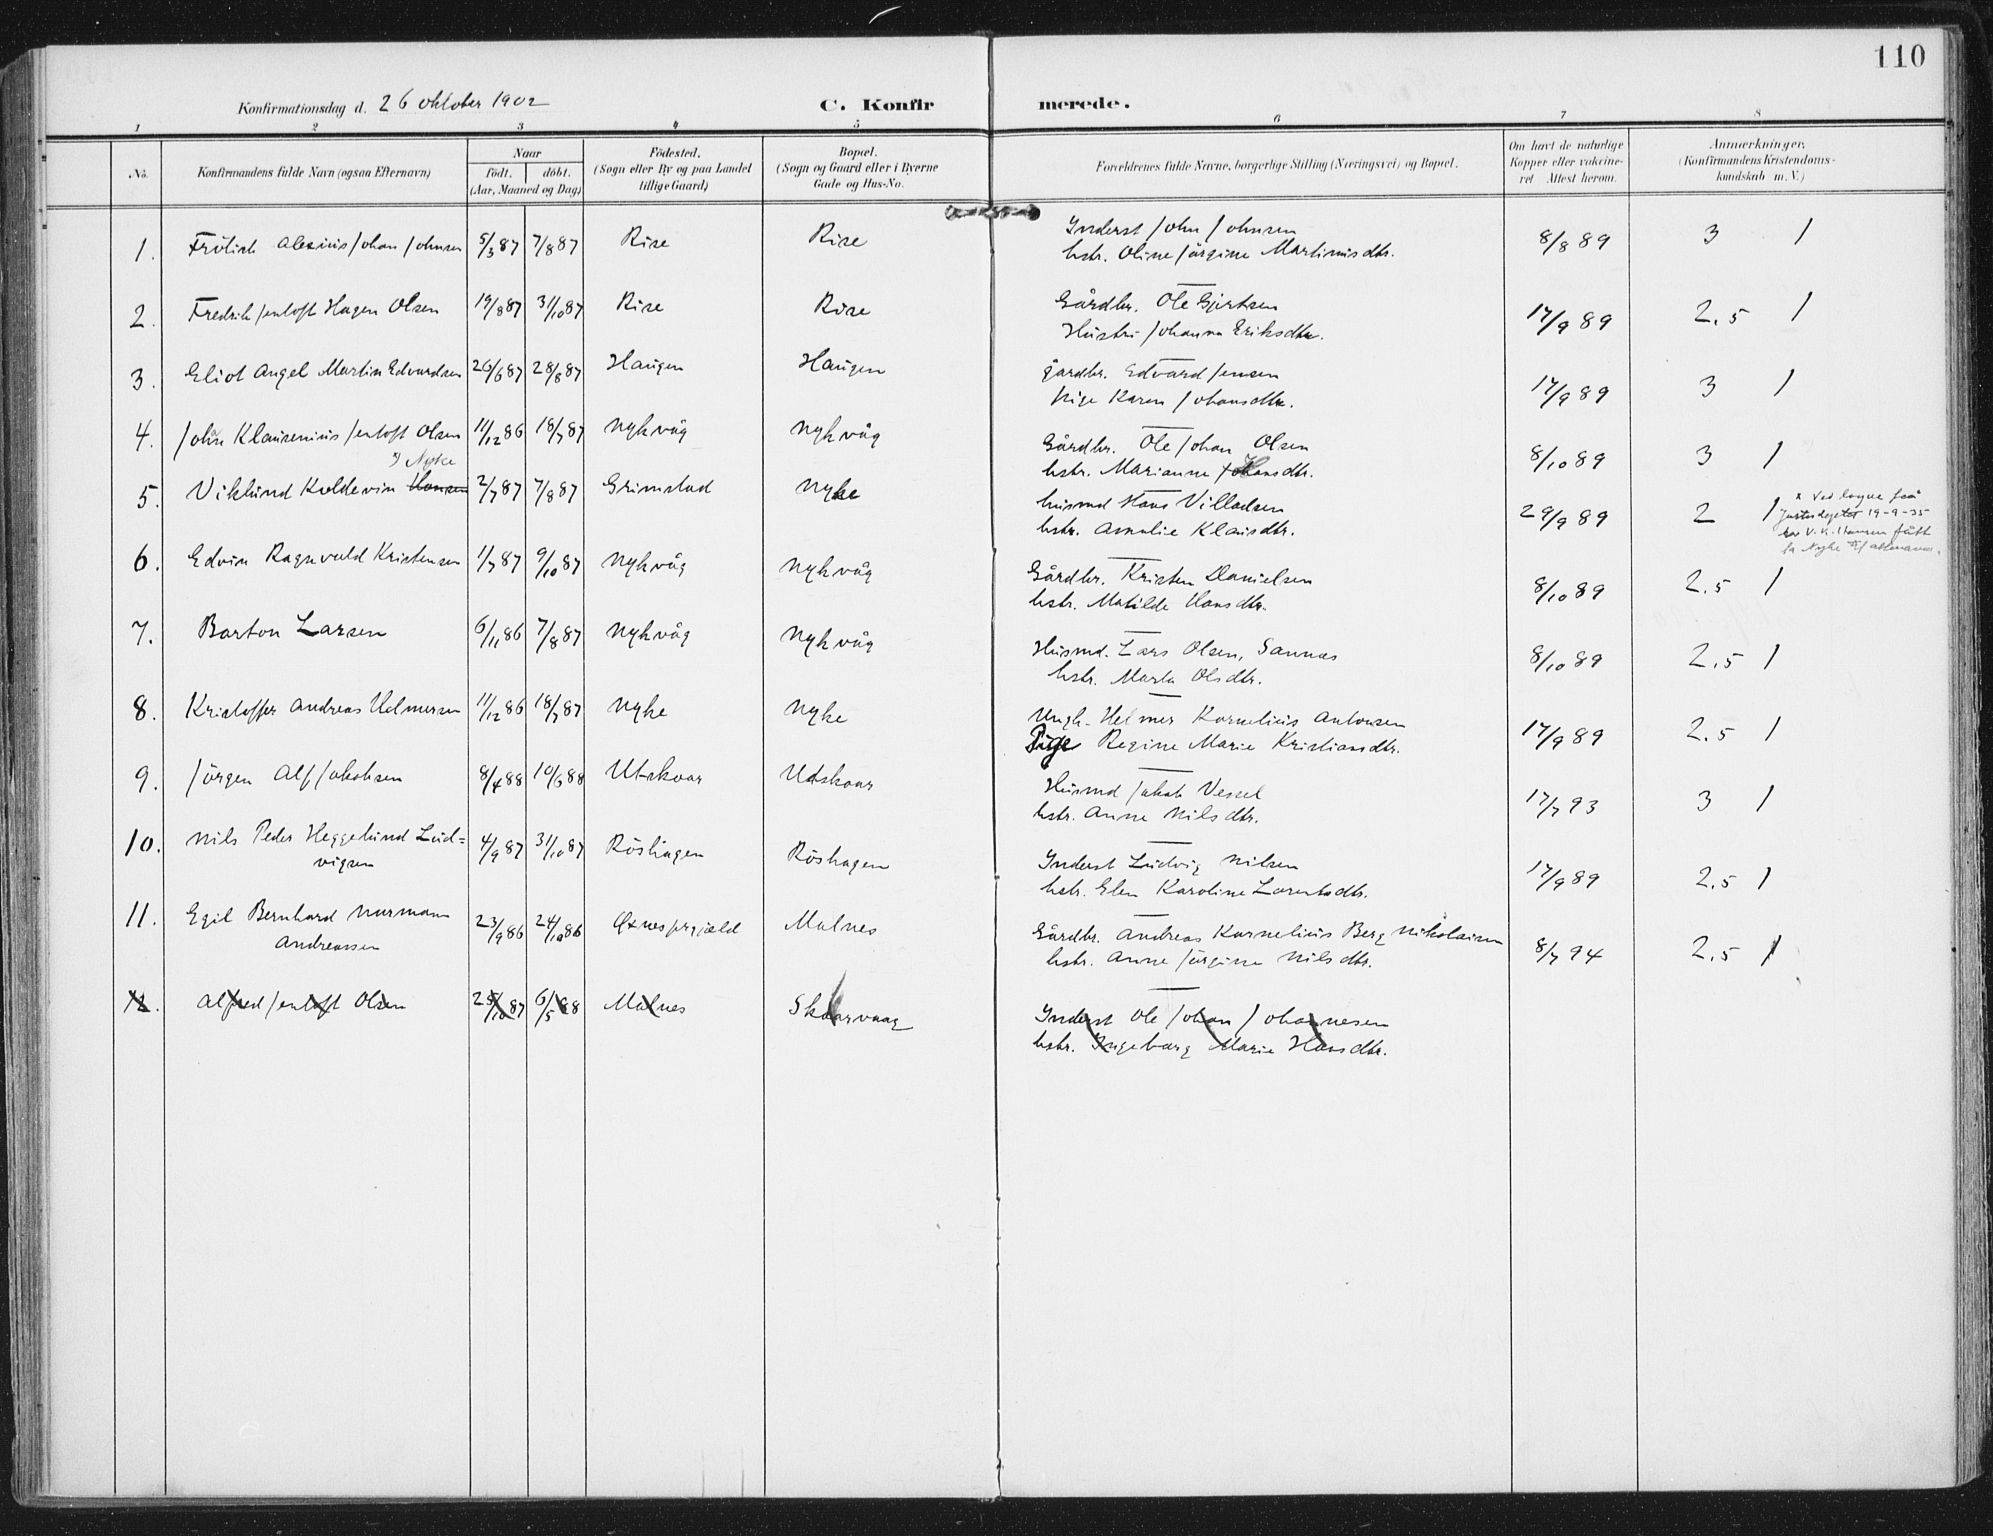 110
Konfirmationsdag d. 26 oktober 1902
C. Konfirmerede.
1 2 3 4 5 6 7 8
No. Konfirmandens fulde Navn (ogsaa Efternavn) Naar födt. döbt. (Aar, Maaned og Dag) Födested. (Sogn eller By og paa Landet tillige Gaard) Bopæl. (Sogn og Gaard eller i Byerne Gade og Hus-No. Forældrenes fulde Navne, borgerlige Stilling (Næringsvei) og Bopæl. Om havt de naturlige Kopper eller vakcineret Attest herom. Anmærkninger. (Konfirmandens Kristendomskundskab m. V.)
1. Frölich Alexius Johan Johnsen 5/3 87 7/8 87 Rise Rise Inderst John Johnsen 8/8 89 3 1
hstr. Oline Jörgine Martinusdtr.
2. Fredrik Jentoft Hagen Olsen 19/8 87 31/10 87 Rise Rise Gårdbr. Ole Gjertsen 17/9 89 2.5 1
Hustru Johanna Eriksdtr.
3. Eliot Angel Martin Edvardsen 26/6 87 28/8 87 Haugen Haugen gårdbr. Edvard Jensen 17/9 89 3 1
pige Karen Johansdtr.
4. Johan Klausenius Jentoft Olsen 11/12 86 18/7 87 Nykvåg Nykvåg Gårdbr. Ole Johan Olsen 8/10 89 3 1
hstr. Marianne Hansdtr.
x) Nyke
5. Viklund Koldevin Hansen 2/7 87 7/8 87 Grimstad Nyke husmd Hans Villadsen 29/9 89 2 1
hstr. Amalie Klausdtr.
x Ved bevne fra
Justisdept 19-9-35
har V. K. Hansen fått
ta Nyke til
6. Edvin Ragnvald Kristensen 1/7 87 9/10 87 Nykvåg Nykvåg Gårdbr. Kristen Danielsen 8/10 89 2.5 1
hstr. Matilde Hansdtr.
7. Barton Larsen 6/11 86 7/8 87 Nykvåg Nykvåg Husmd. Lars Olsen, Sannas 8/10 89 2.5 1
hstr. Marta Olsdtr.
8. Kristoffer Andreas Helmersen 11/12 86 18/7 87 Nyke Nyke Ungk. Helmer Kornelius Antonsen 17/9 89 2.5 1
Pige Regine Marie Kristiansdtr.
9. Jörgen Alf Jakobsen 8/4 88 10/6 88 Utskoar Utskoar Husmd Jakob Vessel 17/7 93 3 1
hstr. Anne Nilsdtr.
10. Nils Peder Heggelund Lud= 4/9 87 31/10 87 Röshagen Röshagen Inderst Ludvig Nilsen 17/9 89 2.5 1
vigsen hstr. Elen Karoline Lorentsdtr.
11. Egil Bernhard Normann 23/9 86 24/10 86 Öxnes prgjæld Malnes Gårdbr. Andreas Kornelius Berg Nikolaisen 8/7 94 2.5 1
Andreassen hstr. Anne Jörgine Nilsdtr.
12. Alfred Jentoft Olsen 25/10 87 6/5 88 Malnes Skaarvaag Inderst Ole Johan Johannesen
hstr. Ingeborg Marie Hansdtr.